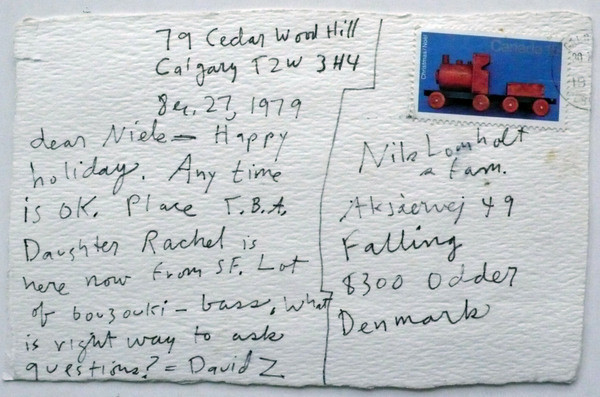 79 Cedar Wood Hill
Calgary T2W 3H4
Dec. 27, 1979
dear Niels — Happy
holiday. Any time
is OK. Place T.B.A.
Daughter Rachel is
here now from SF. Lot
of bouzouki – bass. What
is right way to ask
questions? = David Z
Christmas Noël
Canada
Nils Lomholt
& fam.
49
Falling
8300 Odder
Denmark